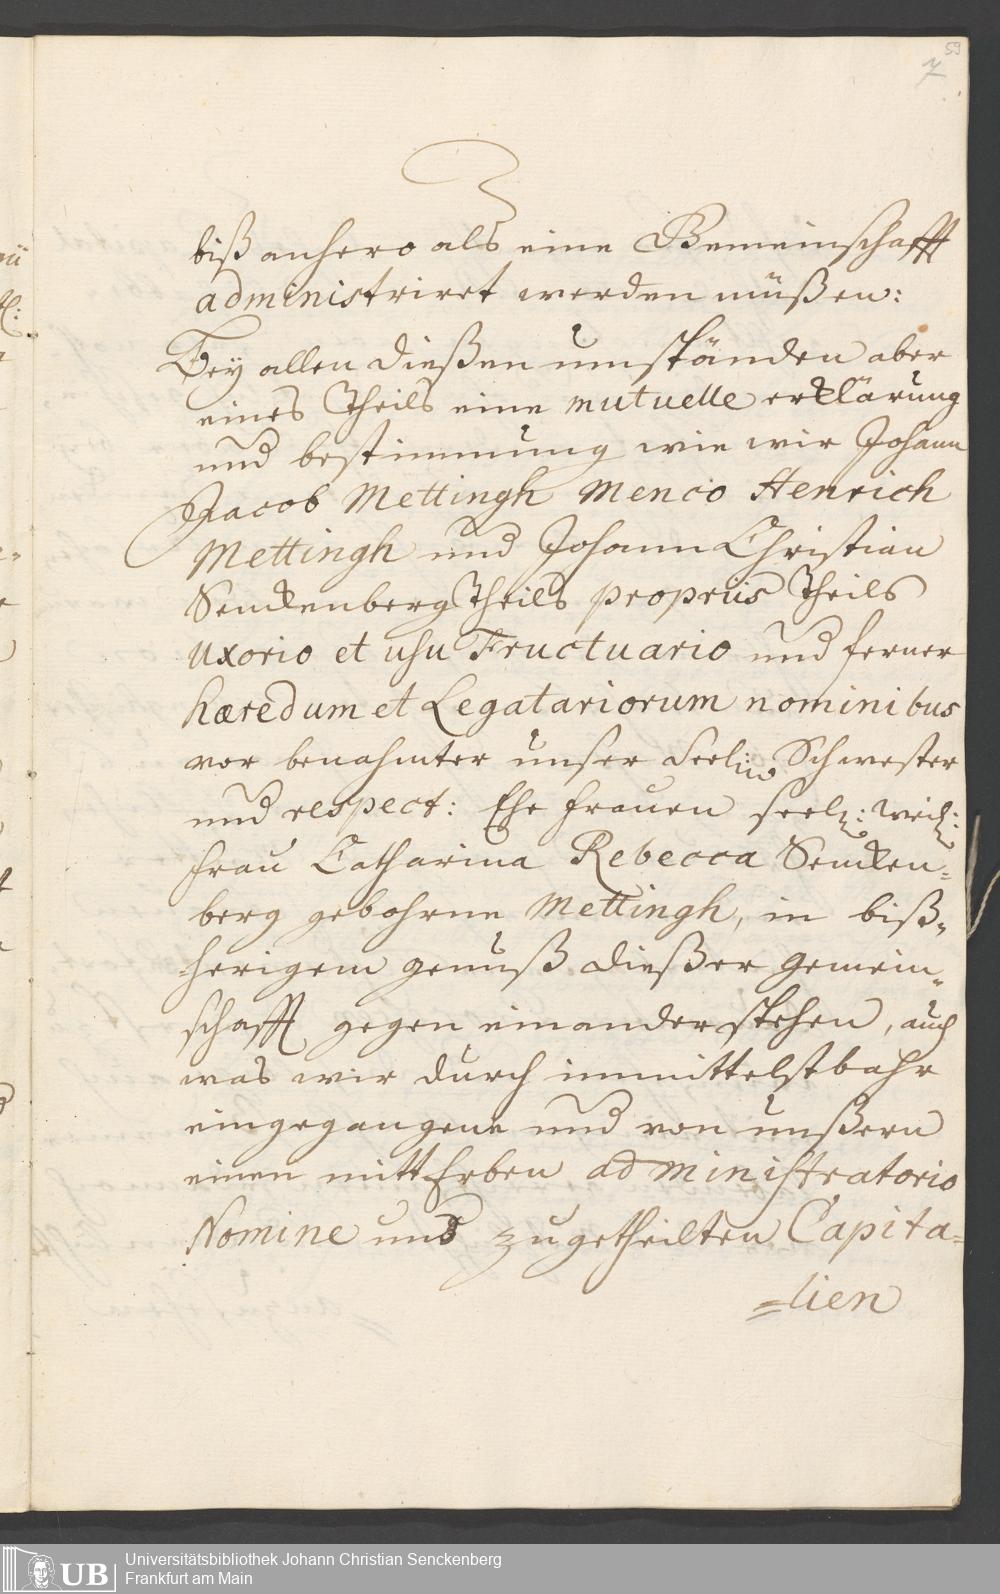 59
7
3
biß anhero als eine Gemeinschafft
administriret werden müßen:
Bey allen dießen umständen aber
eines Theils eine mutuelle erklärung
und bestimmung wie wir Johann
Jacob Mettingh Menco Henrich
Mettingh und Johann Christian
Senckenberg Theils propriis Theils
uxorio et usu Fructuario und ferner
hæredum et Legatariorum nominibus
vor benahmter unser Schwester
und respect: Ehe frauen seel: weil:
frau Catharina Rebecca Sencken=
berg gebohrne Mettingh, in biß=
herigem genuß dießer Gemein=
schafft gegen einander stehen, auch
was wir durch immittelstbahr
eingegangene und von unßern
einen mitt Erben administratorio
Nomine uns zugetheilten Capita=
=lien
UB
Universitätsbibliothek Johann Christian Senckenberg
Frankfurt am Main